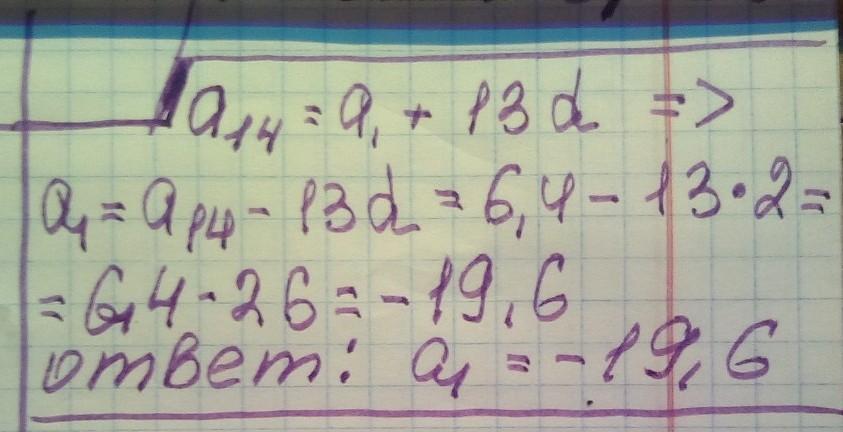 a₁₄ = a₁ + 13d =>
a₁ = a₁₄ - 13d = 6,4 - 13·2 =
= 6,4 - 26 = -19,6
ответ: a₁ = -19,6